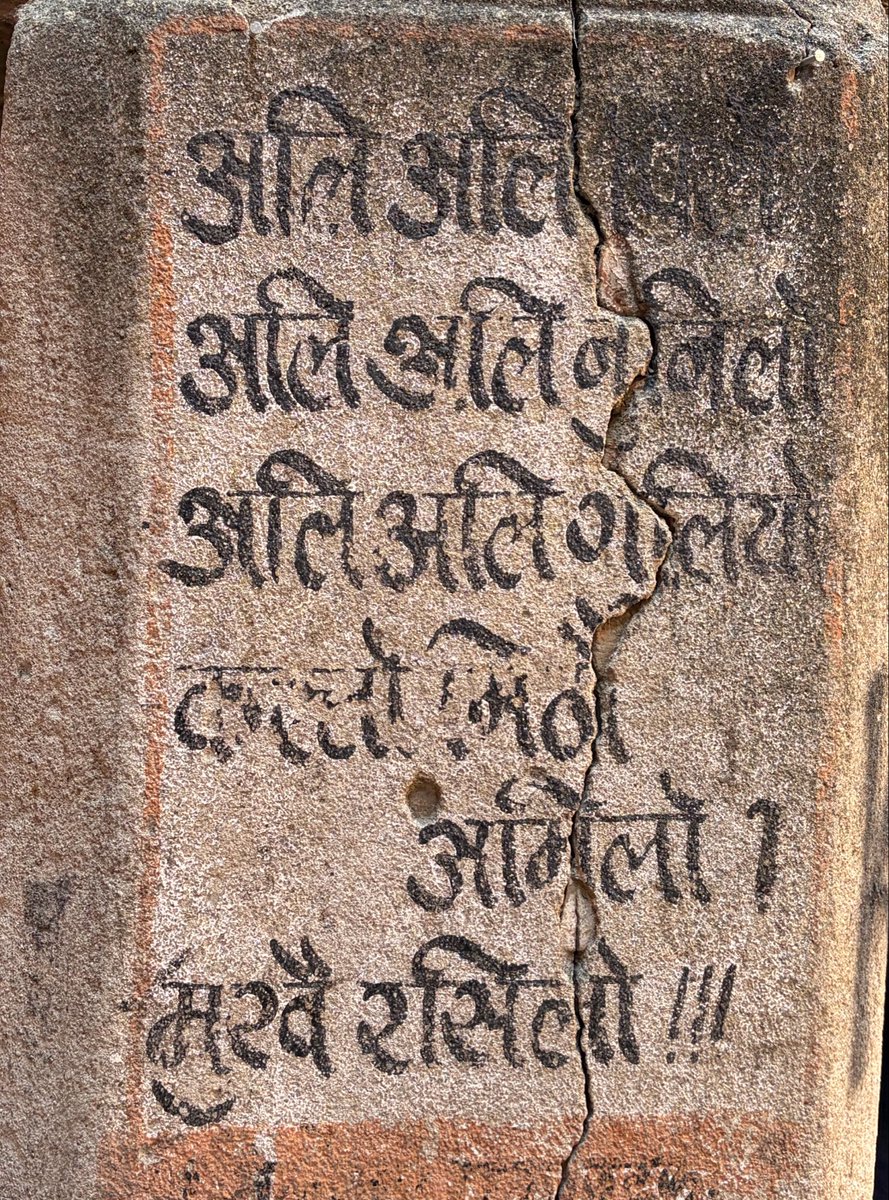 अलि अलि
अलि अलि नुनिलो
अलि अलि गुलियो
कस्तो मिठो
अमिलो ।
मुखै रसिलो !!!